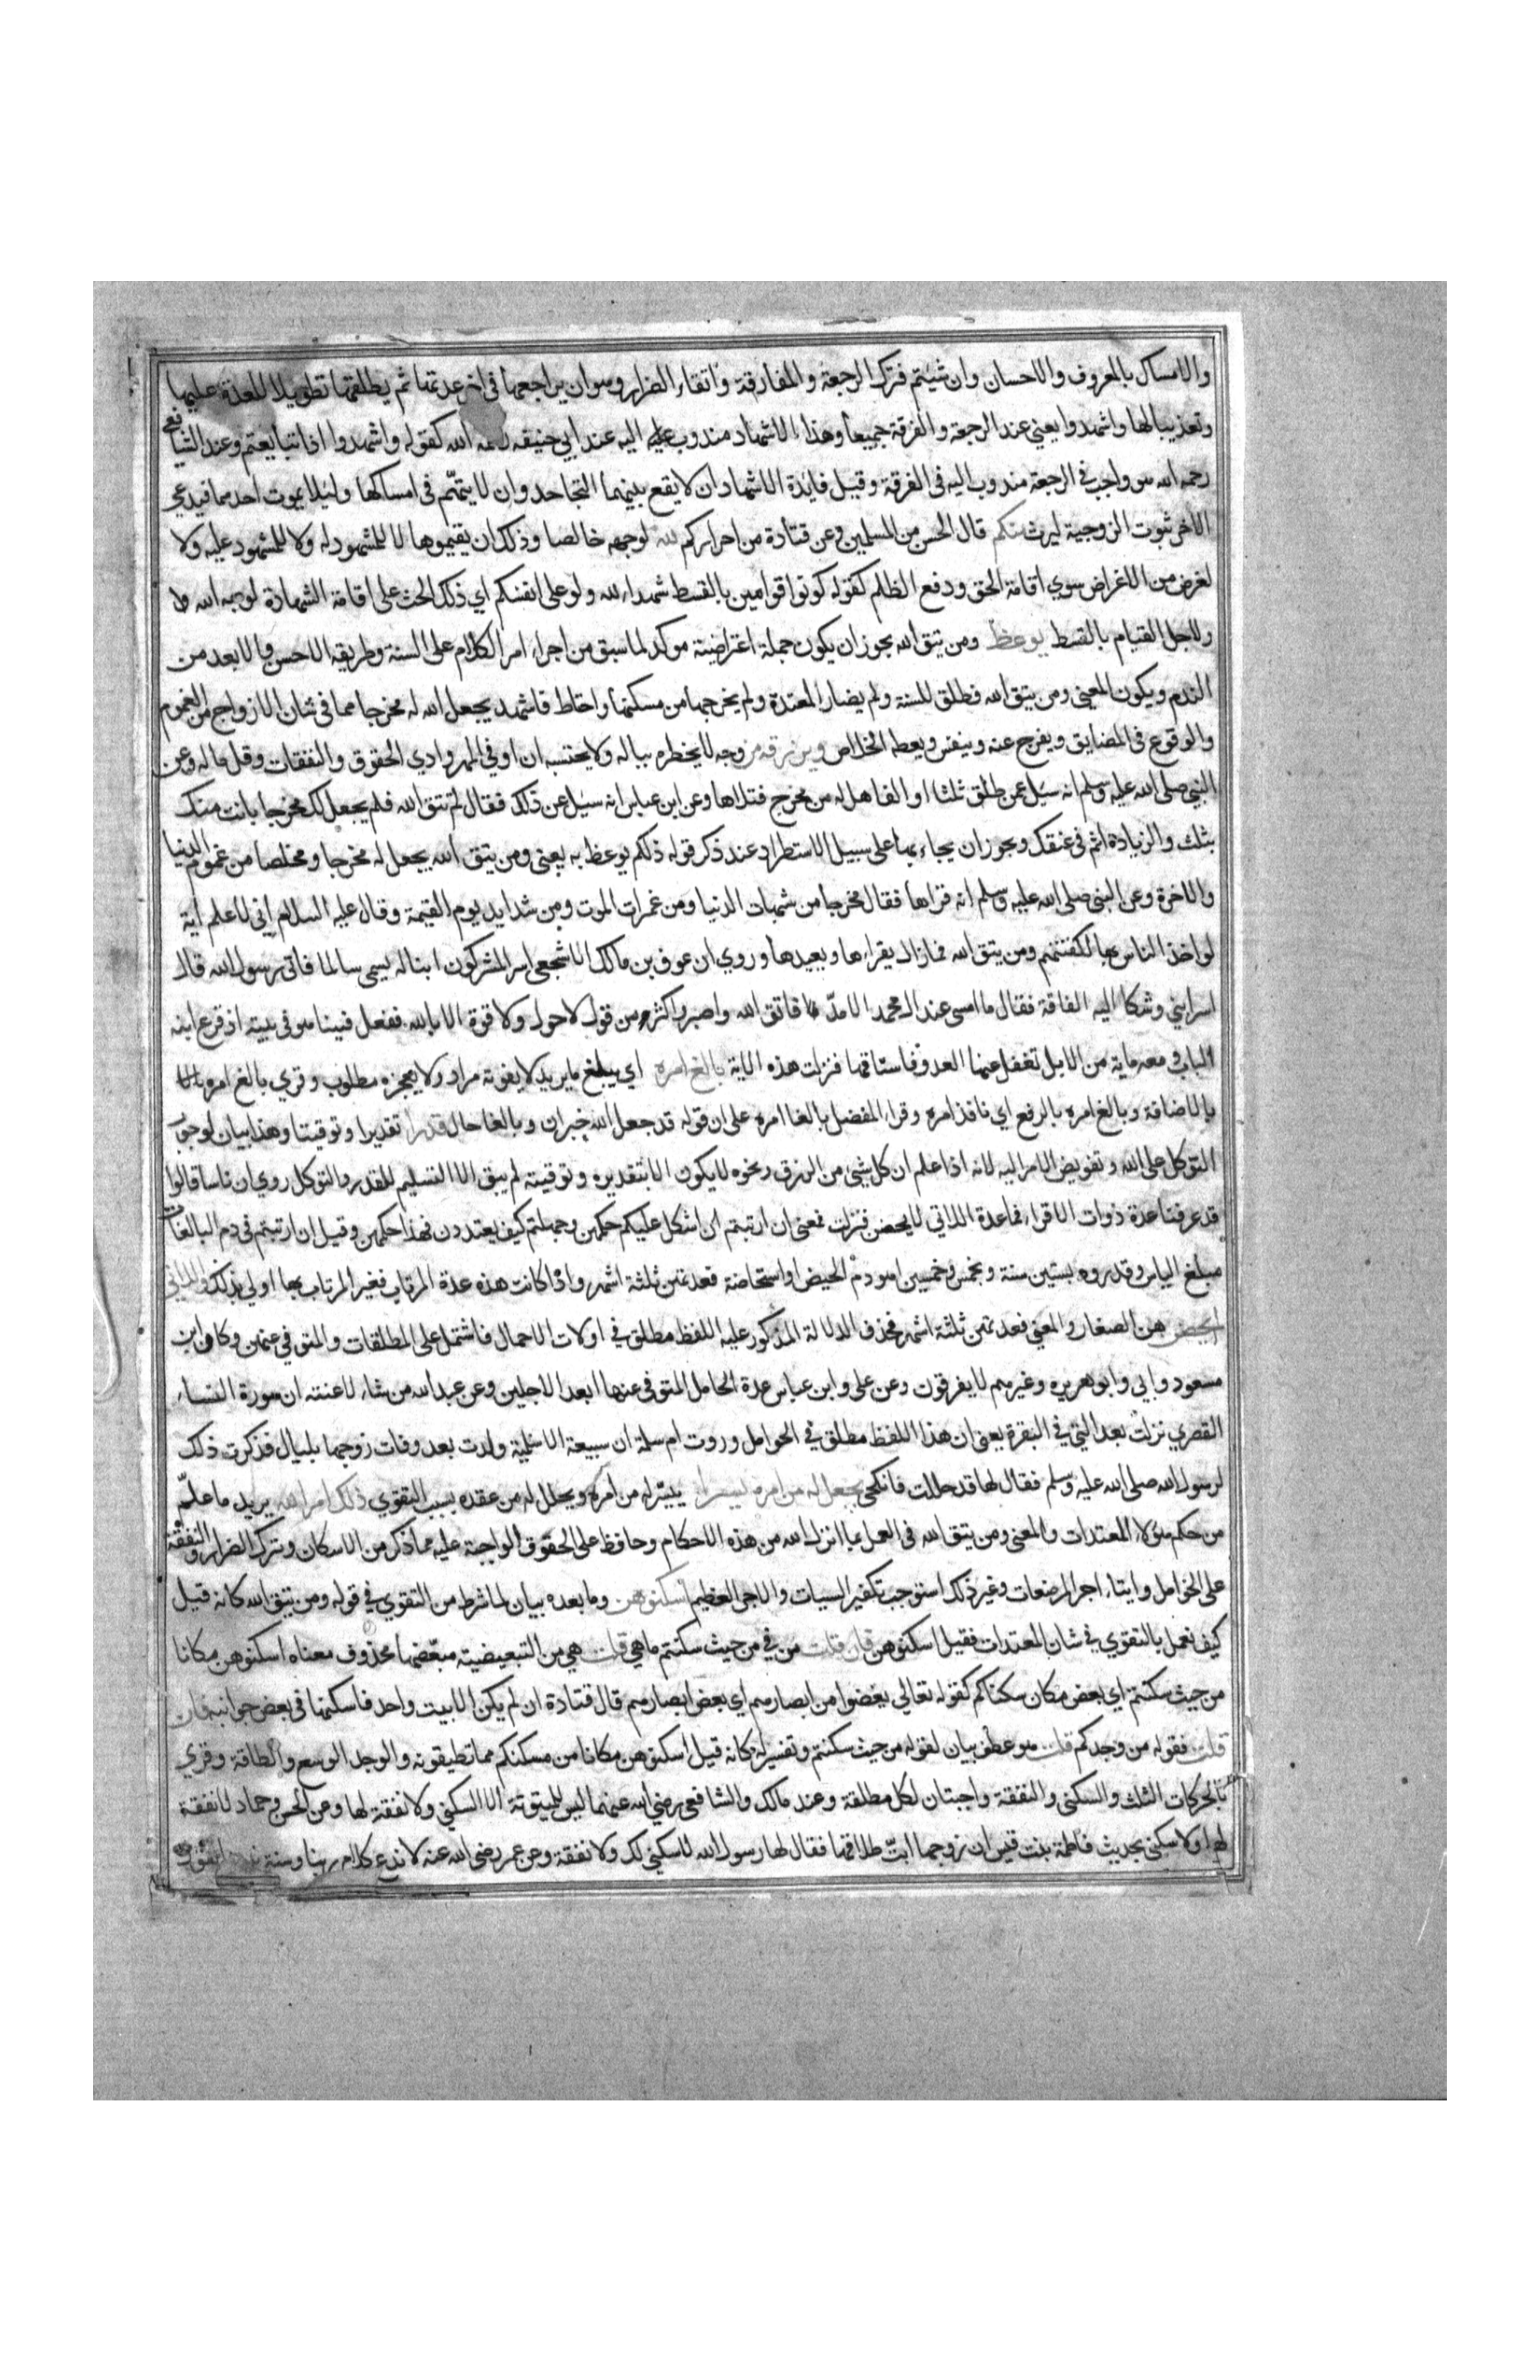 والامساك بالمعروف والاحسان وان شيئتم فترك الرجعة والمفارقة واتقاء الضرار وهو ان يراجعها في اخر عدتها ثم يطلقها تطويلا للعدة عليها
وتعذيبا لها واشهدوا يعني عند الرجعة والفرقة جميعا وهذا الاشهاد مندوب اليه عند ابي حنيفه الله كقوله واشهدوا اذا تبايعتم وعند الشافعي
رحمه الله هو واجب في الرجعة مندوب اليه في الفرقة وقيل فايدة الاشهاد ان لا يقع بينهما التجاحد وان لا يتهم في امساكها ولئلا يموت احدهما فيدعي
الاخر ثبوت الزوجية ليرث منكم قال الحسن من المسلمين وعن قتادة من احراركم لله لوجهه خالصا وذلك ان يقيموها لا للمشهود له ولا للمشهود عليه ولا
لغرض من الاغراض سوي اقامة الحق ودفع الظلم كقوله كونوا قوامين بالقسط شهداء لله ولو على انفسكم اي ذلك الحث على اقامة الشهادة لوجه الله
ولاجل القيام بالقسط يوعظ ومن يتق الله يجوز ان يكون جملة اعتراضية موكد لما سبق من اجراء امر الكلام على السنة وطريقه الاحسن والابعد من
الندم ويكون المعني ومن يتق الله فطلق للسنة ولم يضار المعتدة ولم يخرجها من مسكنها واحتاط فاشهد يجعل الله له مخرجا مما في شان الازواج من الغموم
والوقوع في المضايق ويفرج عنه وينفس ويعطه الخلاص ويرزقه من وجه لا يخطره بباله ولا يحتسبه ان اوفي المهر وادي الحقوق والنفقات وقل ماله وعن
النبي صلى الله عليه وسلم انه سيل عمن طلق ثلثا او الفا هل له من مخرج فتلاها وعن ابن عباس انه سيل عن ذلك فقال لم تتق الله فلم يجعل لك مخرجا بانت منك
بثلث والزيادة اثم في عنقك ويجوز ان يجاء بها على سبيل الاستطراد عند ذكر قوله ذلكم يوعظ به يعني ومن يتق الله يجعل له مخرجا ومخلصا من غموم الدنيا
والاخرة وعن النبي صلى الله عليه وسلم انه قراها فقال مخرجا من شبهات الدنيا ومن غمرات الموت ومن شدايد يوم القيمة وقال عليه السلام اني لاعلم اية
لو اخذ الناس بها لكفتهم ومن يتق الله فما زال يقراءها ويعيدها وروي ان عوف بن مالك الاشجعي اسر المشركون ابنا له يسمى سالما فاتى رسول الله قال
اسر ابني وشكا اليه الفاقة فقال ما امسى عند ال محمد الا مد فاتق الله واصبر واكثر من قول لا حول ولا قوة الا بالله ففعل فبينا هو في بيته اذ قرع ابنه
الباب ومعه ماية من الابل تغفل عنها العدو فاستاقها فنزلت هذه الاية بالغ امره اي يبلغ ما يريد لا يفوته مراد ولا يعجزه مطلوب وقري بالغ امره
بالاضافة وبالغ امره بالرفع اي نافذ امره وقراء المفضل بالغا امره على ان قوله قد جعل الله خبر ان وبالغا حال قدرا تقديرا وتوقيتا وهذا بيان لوجوب
التوكل على الله وتفويض الامر اليه لانه اذا علم ان كل شيئ من الرزق ونحوه لا يكون الا بتقديره وتوقيته لم يبق الا التسليم للقدر والتوكل روي ان ناسا قالوا
قد عرفنا عدة ذوات الاقراء فما عدة اللاتي لا يحضن فنزلت فمعنى ان ارتبتم ان اشكل عليكم حكمهن وجهلتم كيف يعتددن فهذا حكمهن وقيل ان ارتبتم في دم البالغات
مبلغ الياس وقدروه بستين سنة وبخمس وخمسين اهو دم الحيض او استحاضة فعدتهن ثلثة اشهر واذا كانت هذه عدة المرتاب فغير المرتاب بها اولي بذلك واللاتي
لم يحضن هن الصغار والمعني فعدتهن ثلثة اشهر فحذف الدلالة المذكور عليه اللفظ مطلق في اولات الاحمال فاشتمل على المطلقات والمتوفي عنهن وكان ابن
مسعود وابي وابو هريره وغيرهم لا يفرقون وعن علي وابن عباس عدة الحامل المتوفى عنها ابعد الاجلين وعن عبد الله من شاء لاعنته ان سورة النساء
القصري نزلت بعد التي في البقرة يعني ان هذا اللفظ مطلق في الحوامل وروت ام سلمة ان سبيعة الاسلمية ولدت بعد وفات زوجها بليال فذكرت ذلك
لرسول الله صلى الله عليه وسلم فقال لها قد حللت فانكحي يجعل له من امره يسرا ييسر له من امره ويحلل له من عقده بسبب التقوي ذلك امر الله يريد ما علم
من حكم هؤلاء المعتدات والمعنى ومن يتق الله في العمل بما انزل الله من هذه الاحكام وحافظ على الحقوق الواجبة عليه مما ذكر من الاسكان وترك الضرار والنفقة
على الحوامل وايتاء اجر المرضعات وغير ذلك استوجب تكفير السيات والاجر العظيم اسكنوهن وما بعده بيان لما شرط من التقوي في قوله ومن يتق الله كانه قيل
كيف نعمل بالتقوي في شان المعتدات فقيل اسكنوهن فان قلت من في من حيث سكنتم ما هي قلت هي من التبعيضية مبعضها محذوف معناه اسكنوهن مكانا
من حيث سكنتم اي بعض مكان سكناكم كقوله تعالي يغضوا من ابصارهم اي بعض ابصارهم قال قتادة ان لم يكن الا بيت واحد فاسكنها في بعض جوانبه فان
قلت فقوله من وجدكم قلت هو عطف بيان لقوله من حيث سكنتم وتفسير له كانه قيل اسكنوهن مكانا من مسكنكم مما تطيقونه والوجد الوسع والطاقة وقري
بالحركات الثلث والسكنى والنفقة واجبتان لكل مطلقة وعند مالك والشافعي رضي الله عنهما ليس للمبتوتة الا السكني ولا نفقة لها وعن الحسن وحماد لا نفقة
لها ولا سكنى بحديث فاطمة بنت قيس ان زوجها ابت طلاقها فقال لها رسول الله لا سكني لك ولا نفقة وعن عمر رضي الله عنه لا ندع كلام ربنا وسنة